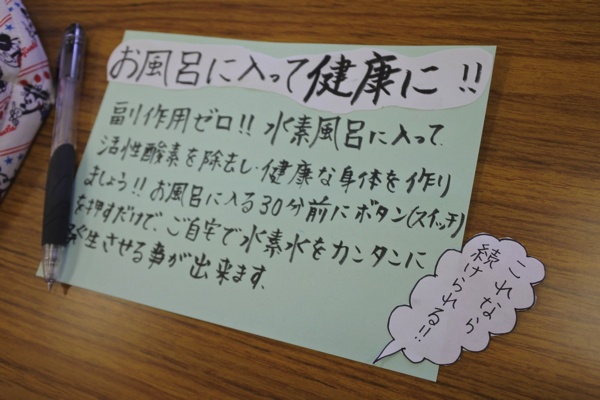 お風呂に入って健康に!!
副作用ゼロ!! 水素風呂に入って
活性酸素を除去し健康な身体を作り
ましょう!! お風呂に入る30分前にボタン(スイッチ)
を押すだけで、ご自宅で水素水をカンタンに
生させる事が出来ます.
これなら
続けられる!!